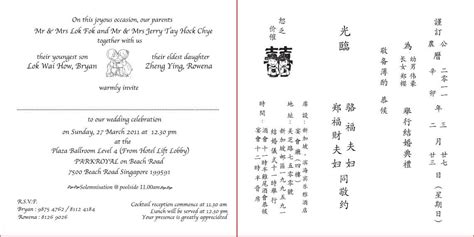 On this joyous occasion, our parents
Mr & Mrs Lok Fok and Mr & Mrs Jerry Tay Hock Chye
together with us
their youngest son
Lok Wai How, Bryan
their eldest daughter
Zheng Ying, Rowena
warmly invite
to our wedding celebration
on Sunday, 27 March 2011 at 12.30 pm
at the
Plaza Ballroom Level 4 (From Hotel Lift Lobby)
PARKROYAL on Beach Road
7500 Beach Road Singapore 199591
Solemnisation @ poolside 11.00am
R.S.V.P.
Bryan : 9875 4762 / 8112 4184
Rowena : 8126 9026
Cocktail reception commences at 11.30 am
Lunch will be served at 12.30 pm
Your presence is greatly appreciated
謹訂
公曆二〇一一年三月廿七日(星期日)
農曆辛卯年二月廿三日
為
幼男
長女
舉行結婚典禮
敬備薄酌
恭候
光臨
駱福夫妇
鄭福財夫妇
同敬約
恕乏價催
囍
席設：新加坡
宴會廳(四樓)
地址：美芝路七五〇〇號
新加坡
時間：結婚儀式十一時